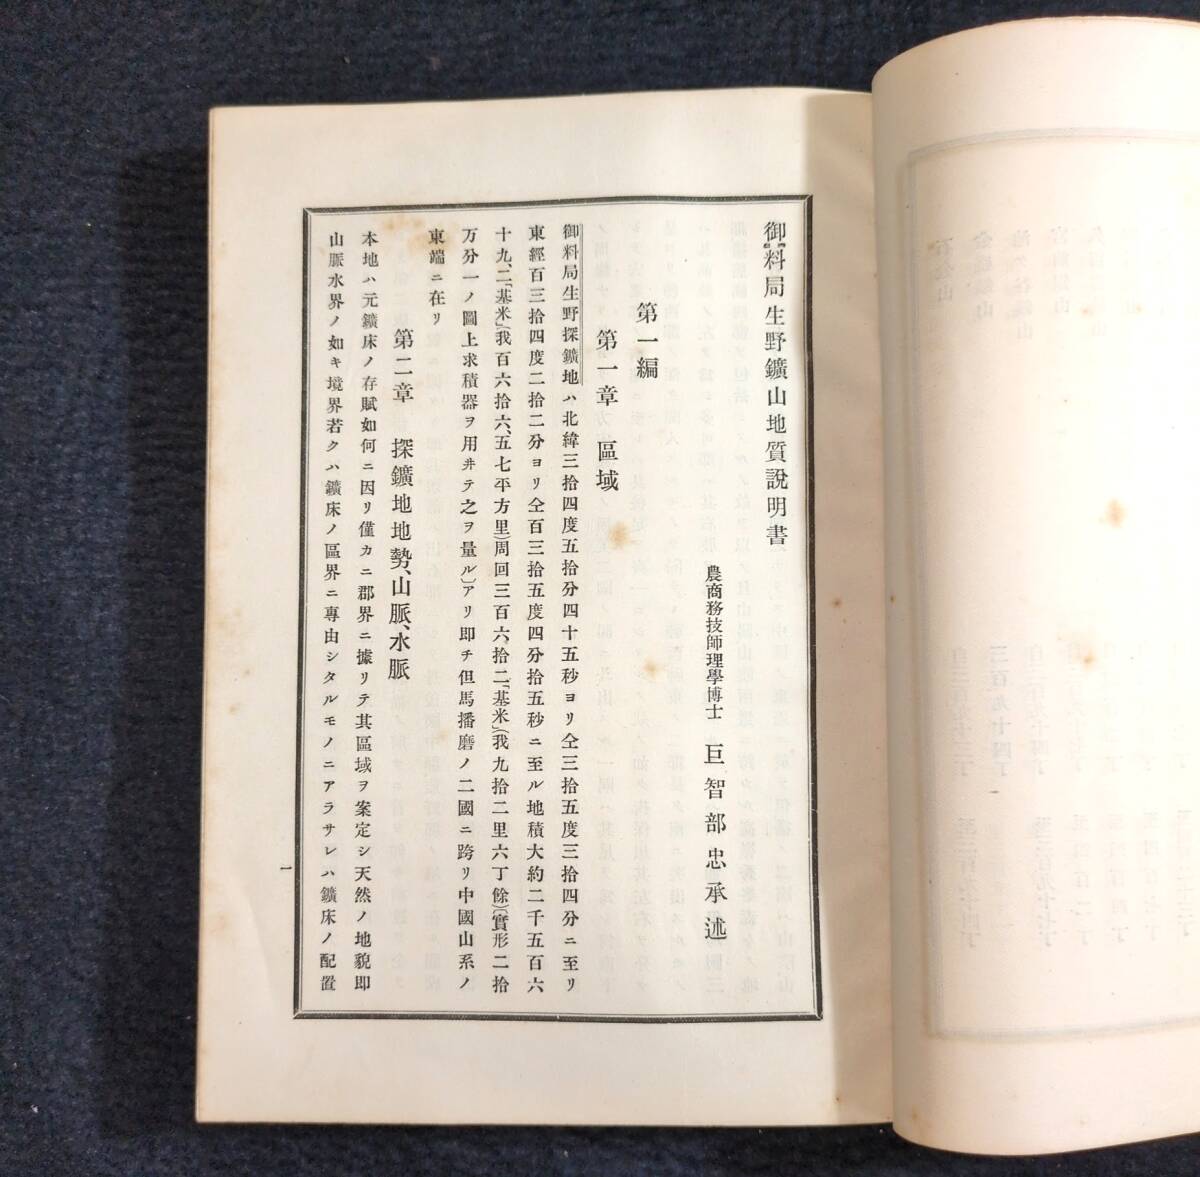 御料局生野鑛山地質説明書
農商務技師理學博士 巨智部忠承述
第一編
第一章 區域
御料局生野探鑛地ハ北緯三拾四度五拾分四十五秒ヨリ仝三拾五度三拾四分ニ至リ
東經百三拾四度二拾二分ヨリ仝百三拾五度四分拾五秒ニ至ル地積大約二千五百六
十九、二「基米」(我百六拾六、五七平方里)周回三百六、拾二「基米」(我九拾二里六丁餘)(實形二拾
万分一ノ圖上求積器ヲ用ヰテ之ヲ量ル)アリ即チ但馬播磨ノ二國ニ跨リ中國山系ノ
東端ニ在リ
第二章 探鑛地地勢、山脈、水脈
本地ハ元鑛床ノ存賦如何ニ因リ僅カニ郡界ニ據リテ其區域ヲ案定シ天然ノ地貌即
山脈水界ノ如キ境界若クハ鑛床ノ區界ニ專由シタルモノニアラサレハ鑛床ノ配置
一